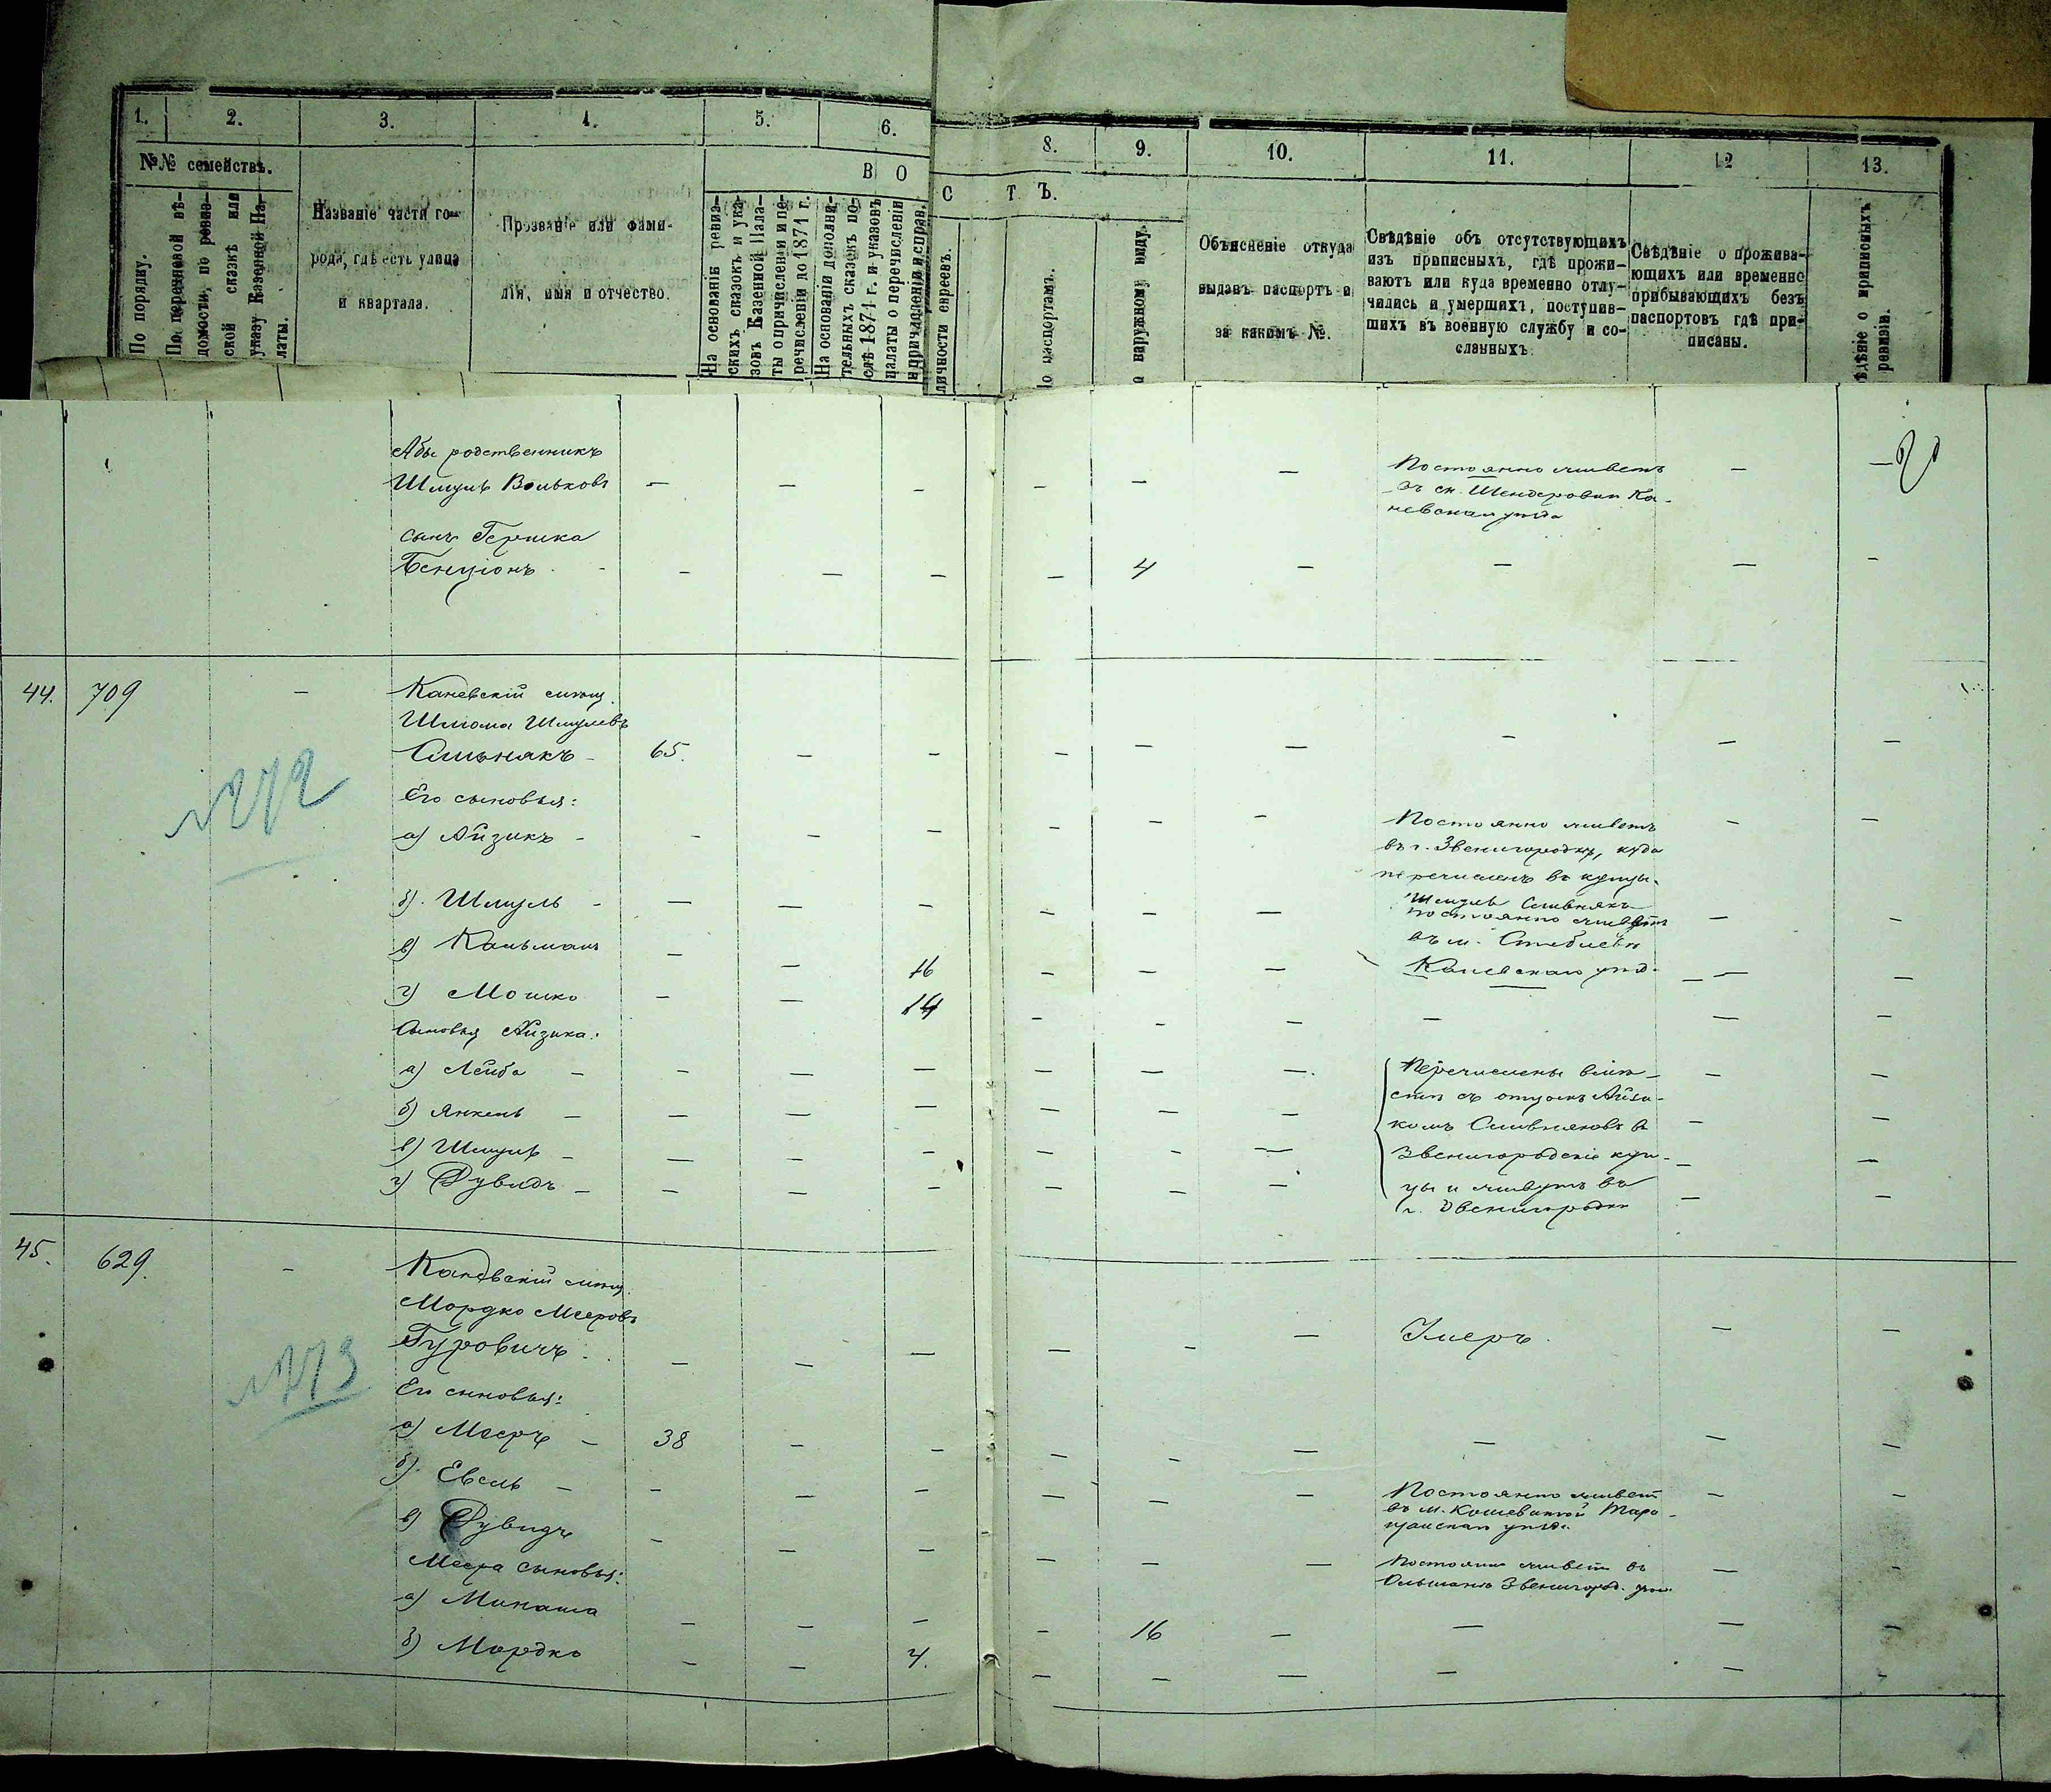 1. 2. 3. 4. 5. 6. 8. 9. 10. 11. 12 13.
№№ семействъ.
По порядку.
По перечневой вѣ-
домости, по ревиз-
ской сказкѣ или
указу Казенной Па-
латы.
Названіе части го-
рода, гдѣ есть улица
и квартала.
Прозваніе или фами-
лія, имя и отчество.
В О
С Т Ъ.
На основаніи ревиз-
скихъ сказокъ и ука-
зовъ Казенной Пала-
ты о причисленіи и пе-
речисленіи до 1871 г.
На основаніи дополни-
тельныхъ сказокъ по-
слѣ 1871 г. и указовъ
палаты о перечисленіи
и причисленіи и справ.
личности евреевъ.
о паспортамъ.
о наружному виду.
Объясненіе откуда
выданъ паспортъ и
за какимъ №.
Свѣдѣніе объ отсутствующихъ
изъ приписныхъ, гдѣ прожи-
ваютъ или куда временно отлу-
чились и умершихъ, поступив-
шихъ въ военную службу и со-
сланныхъ.
Свѣдѣніе о прожива-
ющихъ или временно
прибывающихъ безъ
паспортовъ гдѣ при-
писаны.
ѣдѣніе о приписныхъ
ревизіи.
Абы родственникъ
Шмуль Вольковъ — — — — — — Постоянно живетъ — —
въ с. Шендеровкѣ Ка-
невскаго уѣзда
20
сынъ Гершка
Бенціонъ - — — — — 4 — — — —
44. 709 — Каневскій мѣщ.
Шлиома Шмулевъ
Сливнякъ - 65. — — — — — — — —
№ 212
Его сыновья:
а) Айзикъ - — — — — — — Постоянно живетъ — —
въ г. Звенигородкѣ, куда
перечисленъ въ купцы.
б) Шмуль - — — — — — — Шмуль Сливнякъ
постоянно живетъ — —
въ м. Стеблевѣ
в) Кальманъ — — 16 — — — Каневскаго уѣз. — —
г) Мошко — — 14 — — — — — —
Сыновья Айзика:
а) Лейба — — — — — — — Перечислены вмѣ- — —
б) Янкель — — — — — — — стѣ съ отцомъ Айзи- — —
комъ Сливнякомъ въ
в) Шмуль - — — — — — — Звенигородскіе куп- — —
г) Дувидъ — — — — — — — цы и живутъ въ — —
г. Звенигородкѣ
45. 629. — Каневскій мѣщ.
Мордко Мееровъ
Гуровичъ. — — — — — — Умеръ. — —
№ 213
Его сыновья:
а) Мееръ — 38 — — — — — — — —
б) Евель — — — — — — — Постоянно живетъ — —
въ м. Кошеватой Тара-
щанскаго уѣзда.
в) Дувидъ — — — — — — Постоянно живетъ въ — —
Ольшанѣ Звенигород. уѣз.
Меера сыновья:
а) Минаша — — — — 16 — — — —
б) Мордко — — 4. — — — — — —